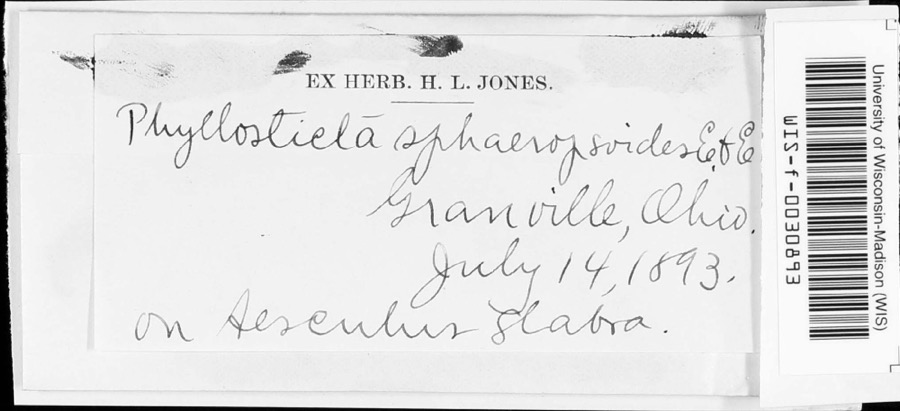 EX HERB. H. L. JONES.
Phyllosticta sphaeropsoides E. & E.
Granville, Ohio.
July 14, 1893.
on Aesculus glabra.
University of Wisconsin-Madison (WIS)
WIS-f-0030893